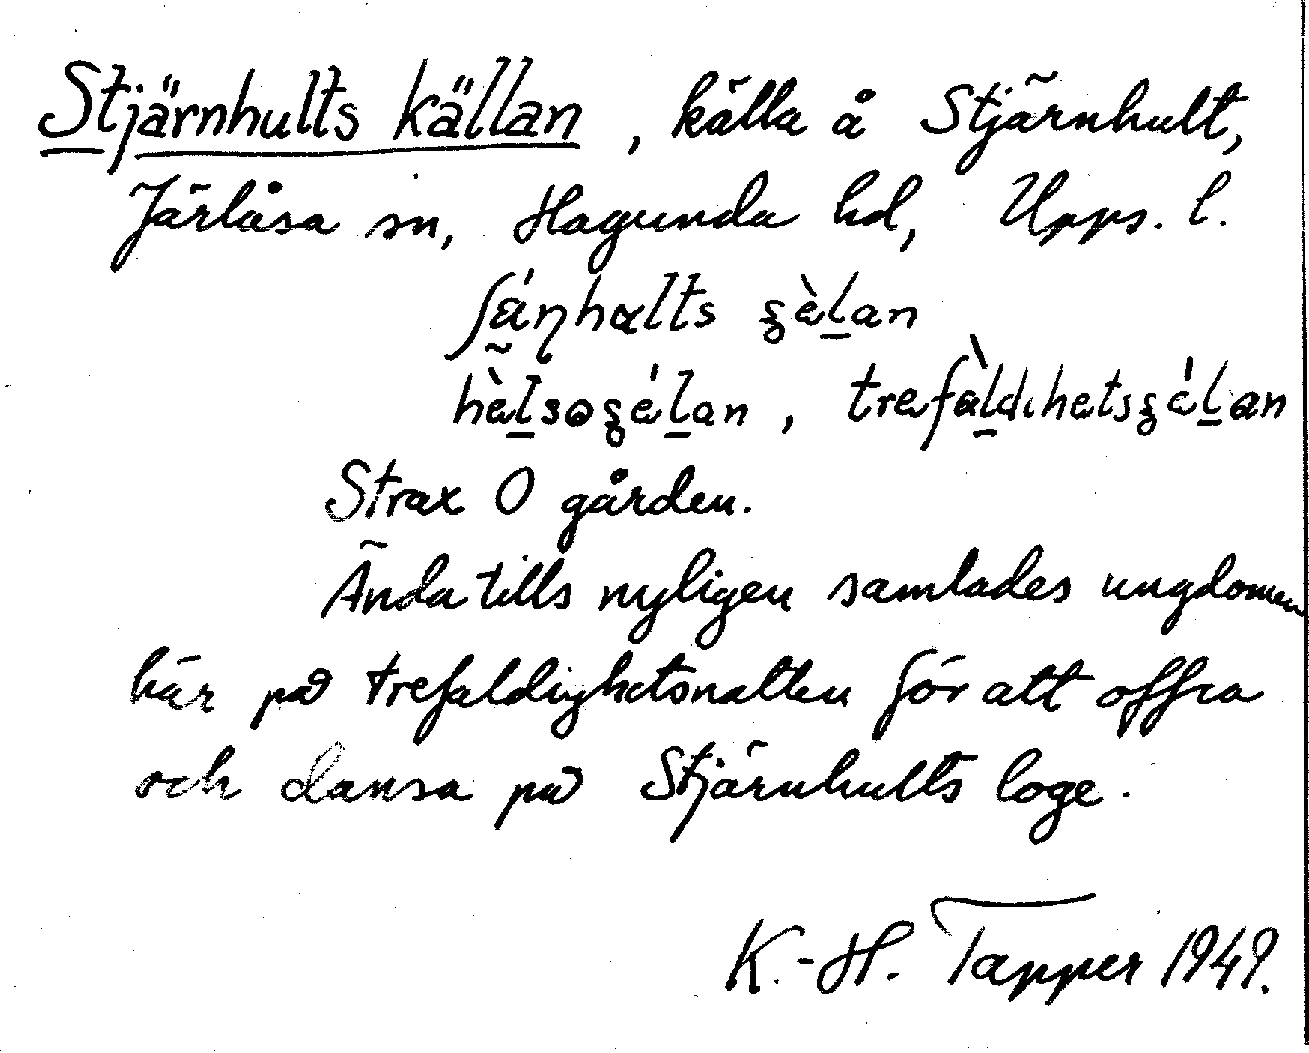 Stjärnhults källan, källa å Stjärnhult,
Järlåsa sn, Hagunda hd, Upps. l.
Strax O gården.
Ända tills nyligen samlades ungdomen
här på trefaldighetsnatten för att offra
och dansa på Stjärnhults loge.
K.-H. Tapper 1949.